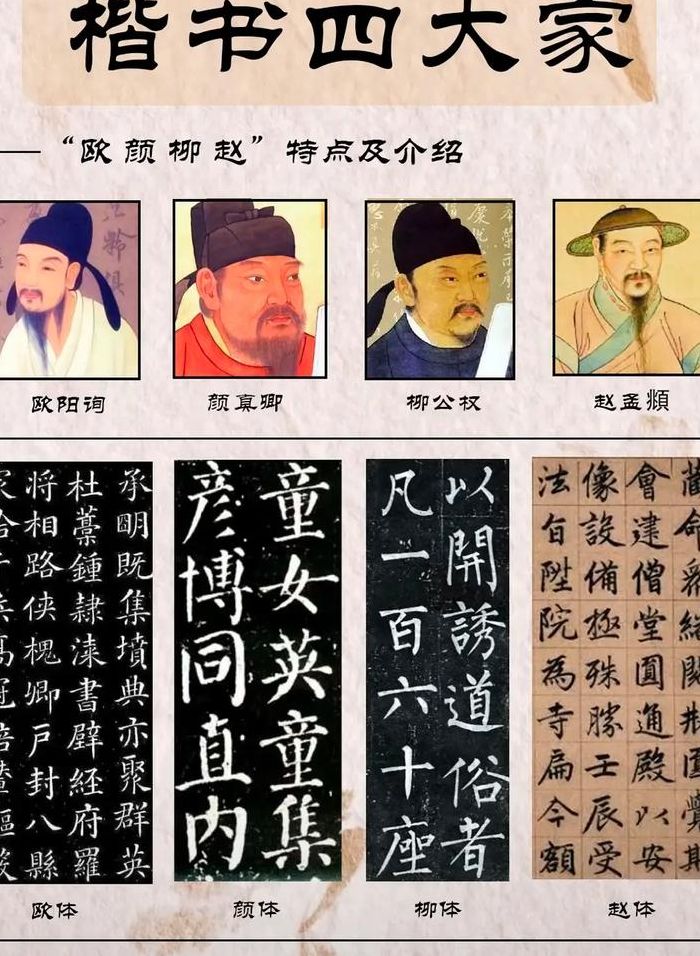 楷书四大家
——“欧颜柳赵”特点及介绍
欧阳询
颜真卿
柳公权
赵孟頫
承明既集墳典亦聚群英
杜藁鍾隸漆書壁經府羅
將相路俠槐卿戶封八縣
童女英童集
彥博同直内
以開誘道俗者
凡一百六十座
會建僧堂圓通殿以安
像設備極殊勝壬辰受
法旨陞院為寺扁今額
欧体
颜体
柳体
赵体